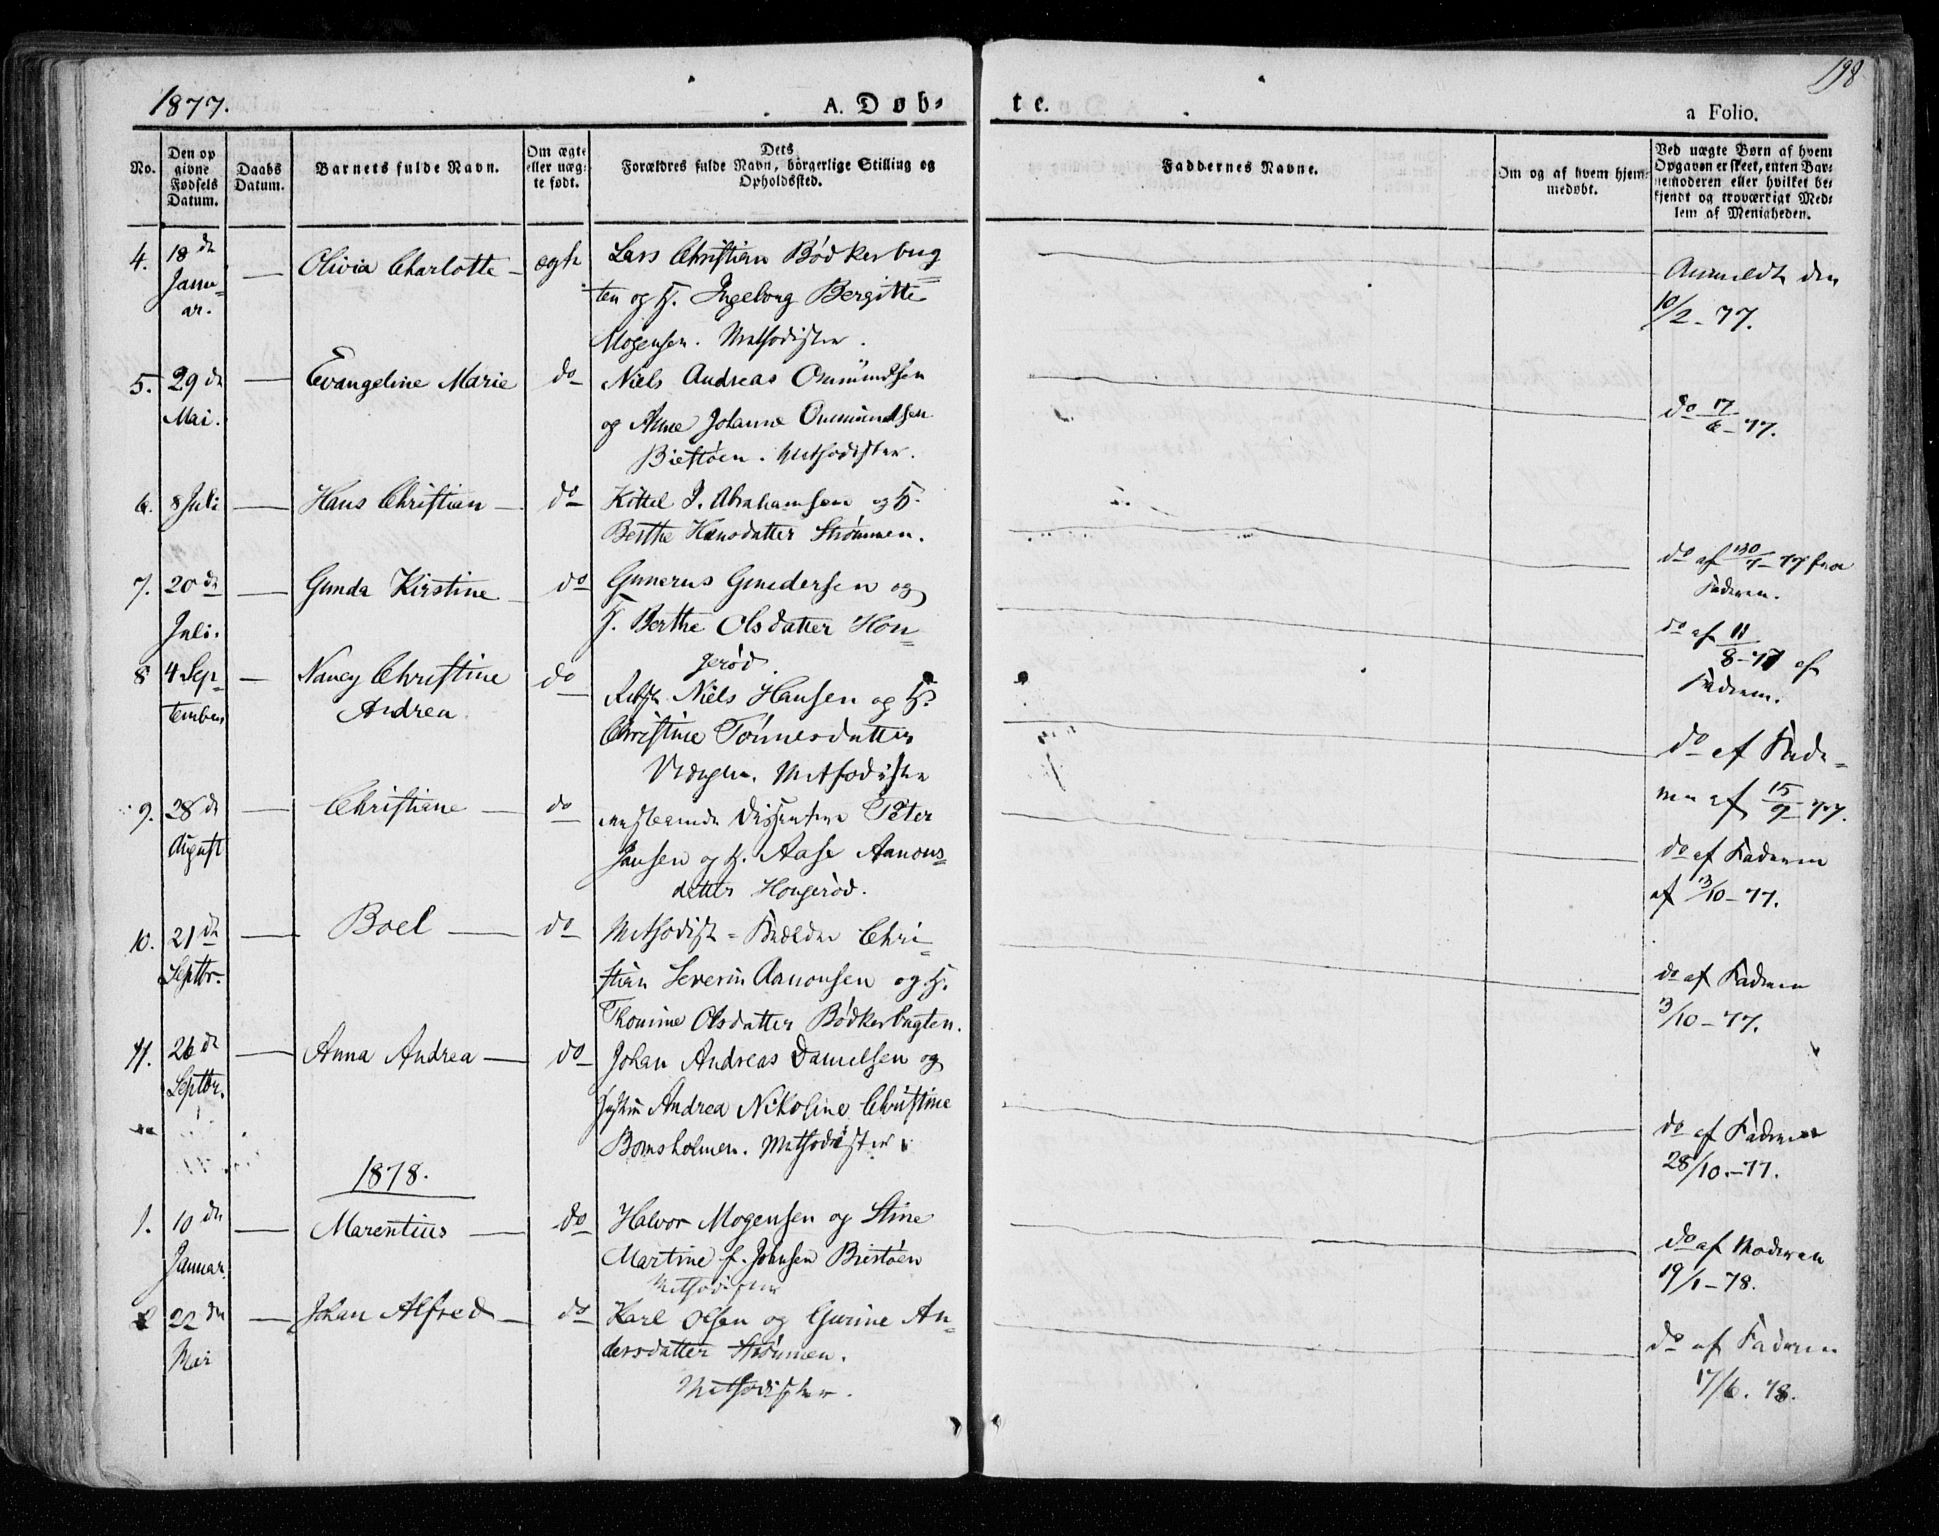 1877.
A. Døb-
te.
a Folio.
198
No.
Den op
givne
Fødsels
Datum.
Daabs
Datum.
Barnets fulde Navn.
Om ægte
eller uæg-
te født.
Dets
Forældres fulde Navn, borgerlige Stilling og
Opholdssted.
Faddernes Navne.
Om og af hvem hjem-
medøbt.
Ved uægte Børn af hvem
Opgaven er skeet, enten Bar-
nemoderen eller hvilket be-
kjendt og troværdigt Med-
lem af Menigheden.
4. 18de Janu-
ar.
Olivia Charlotte
ægte
Lars Christian Bödkerbug
ten og H. Ingeborg Bergitte
Mogensen. Methodister.
Anmeldt den
10/2-77.
5. 29de
Mai.
Evangeline Marie
do
Niels Andreas Ommundsen
og Anne Johanne Ommundsen
Biestöen. Methodister.
do 17/6-77.
6. 8 Juli
Hans Christian
do
Kittel J. Abrahamsen og H.
Berthe Hansdatter Strømmen.
do af 30/7-77 fra
Faderen.
7. 20de
Juli.
Gunda Kirstine
do
Gunerus Gundersen og
H. Berthe Olsdatter Hon-
gerød.
do af 11/8-77 af
Faderen.
8 4 Sep-
tember
Nancy Christine
Andrea
do
Niels Hansen og H.
Christine Tönnesdatter
Methodister
do af Fade-
ren af 15/9-77.
9. 28de
August
Christiane
do
Dissentere Peter
Jansen og H. Aase Aanons-
datter Hongeröd.
do af Faderen
af 13/10-77.
10. 21de
Septbr.
Boel
do
Methodist-Forældre Chri-
stian Severin Aanonsen og H.
Thomine Olsdatter Bødkerbugten.
do af Faderen
3/10-77.
11. 26de
Septbr.
Anna Andrea
do
Johan Andreas Danielsen og
Hustru Andrea Nikoline Christine
Bomsholmen. Methodister
do af Faderen
28/10-77.
1878.
1. 10de
Januar.
Marentius
do
Halvor Mogensen og Stine
Martine f. Johnsen Biestöen
Methodister
do af Moderen
19/1-78.
2 22de
Mai
Johan Alfred
do
Karl Olsen og Gurine An-
dersdatter Strömmen.
Methodister.
do af Faderen
17/6. 78.